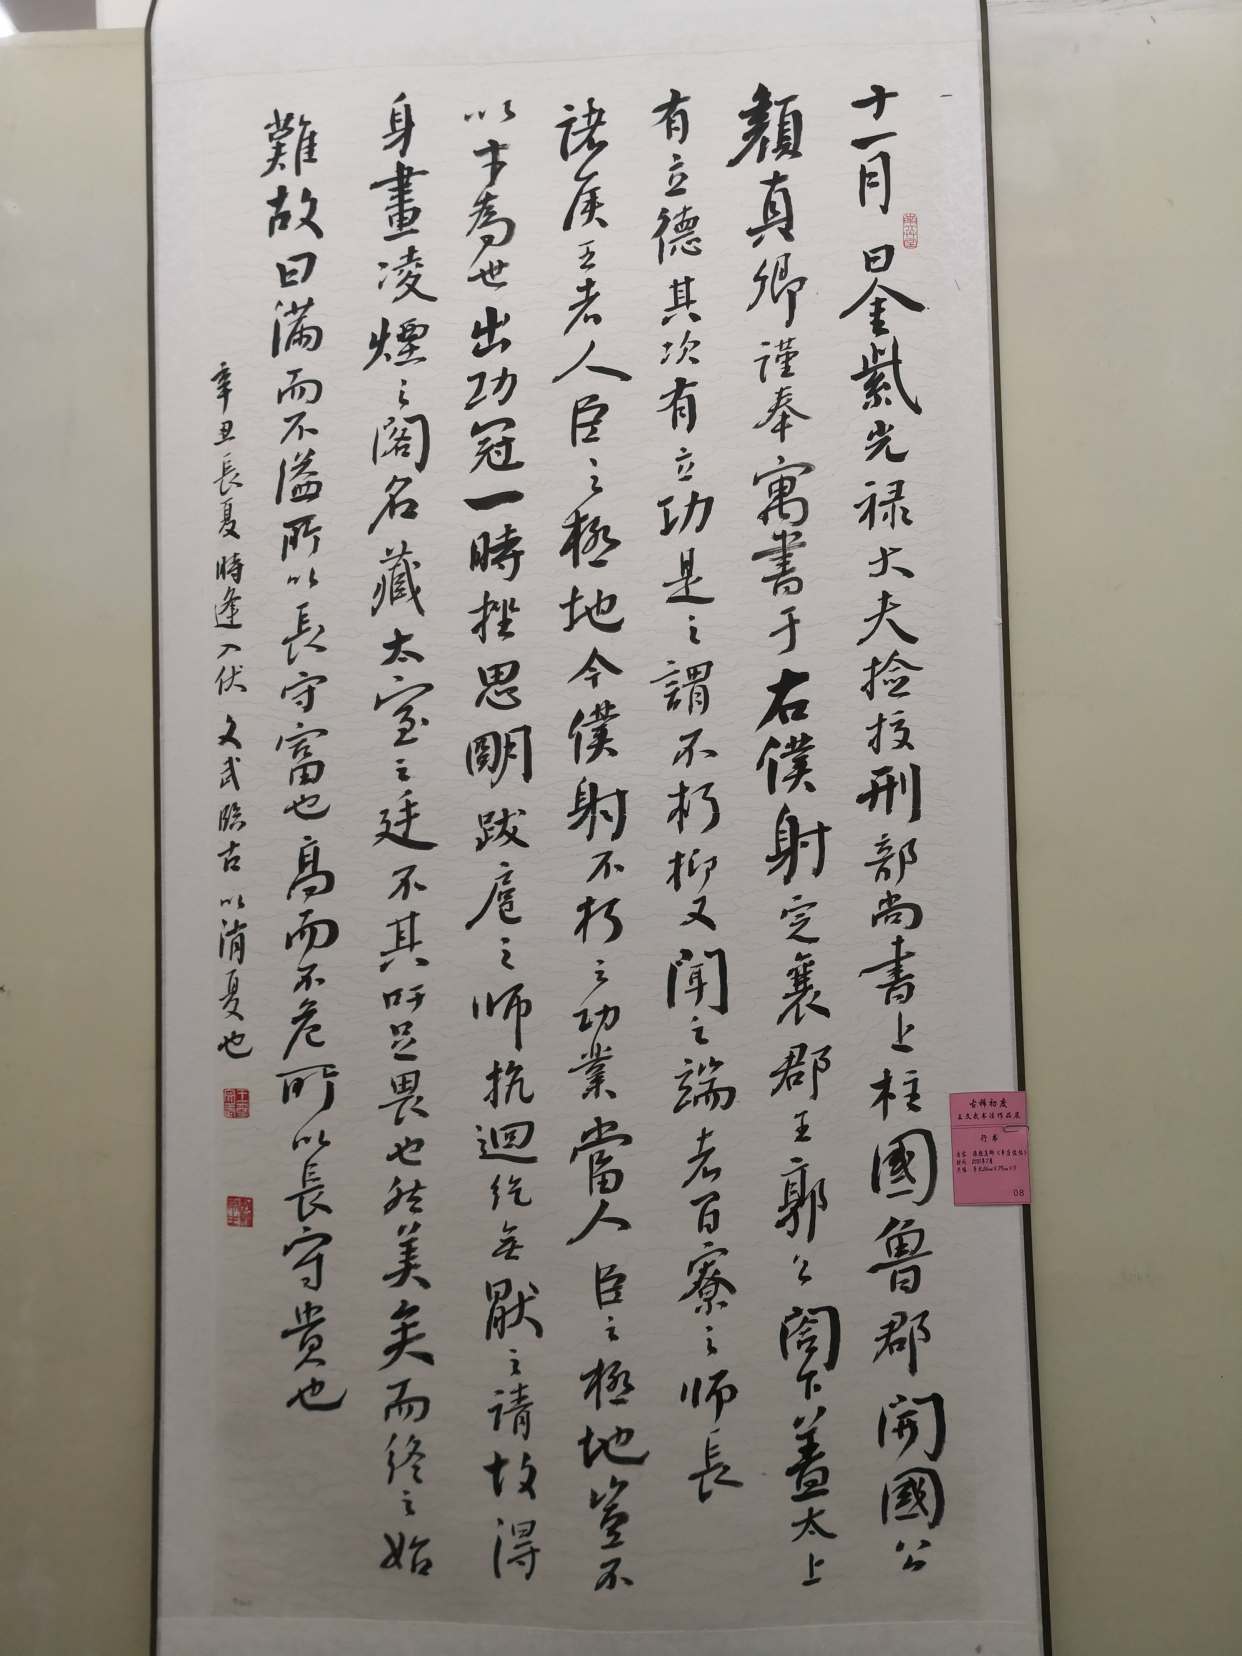 十一月 日金紫光禄大夫捡挍刑部尚書上柱國魯郡開國公
顏真卿謹奉寓書于右僕射定襄郡王郭公閤下蓋太上
有立德其次有立功是之謂不朽抑又聞之端者百寮之師長
諸侯王者人臣之極地今僕射不朽之功業當人臣之極地豈不
以才為世出功冠一時挫思明跋扈之師抗迴紇無厭之請故得
身畫凌煙之閣名藏太室之廷不其吁足畏也然美矣而終之始
難故曰滿而不溢所以長守富也高而不危所以長守貴也
辛丑長夏時逢入伏文武臨古以消夏也
古稀初度
王文武书法作品展
行书
08